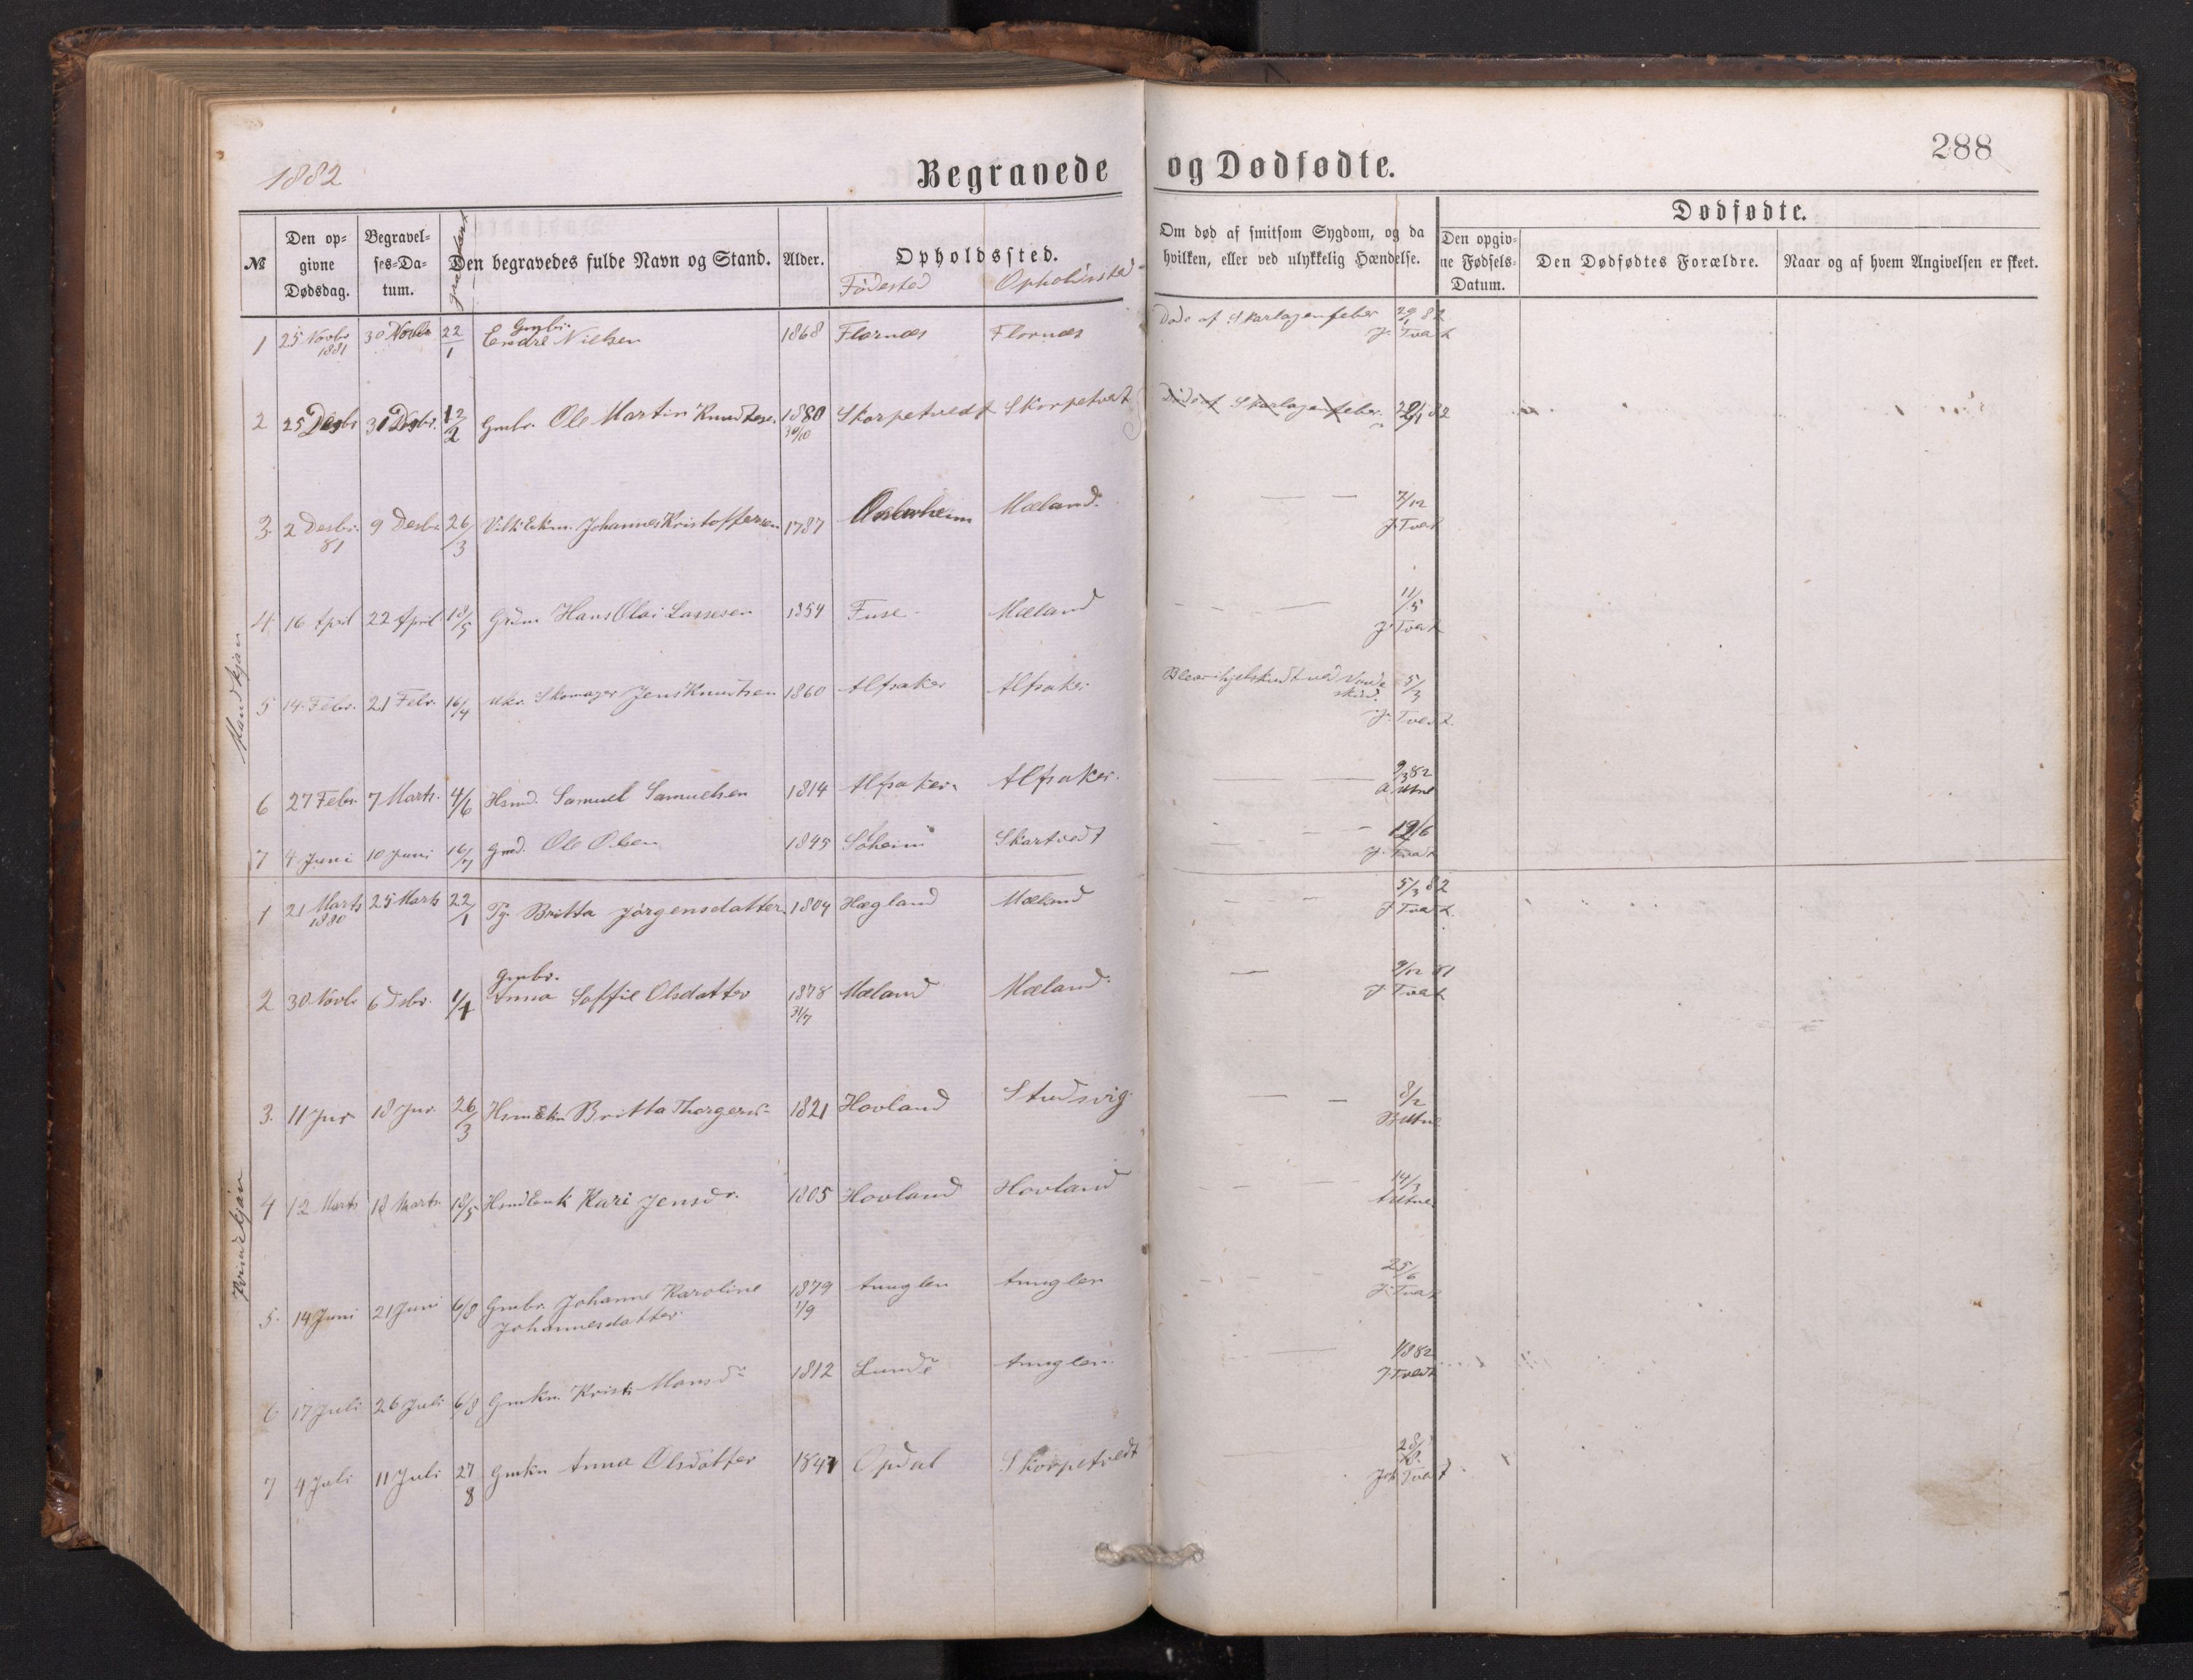 1882
Begravede og Dødfødte.
288
№
Den op=
givne
Dødsdag.
Begravel=
ses=Da=
tum.
Den begravedes fulde Navn og Stand.
Alder.
Opholdssted.
Födested
Opholdssted
Om død af smitsom Sygdom, og da
hvilken, eller ved ulykkelig Hændelse.
Dødfødte.
Den opgiv=
ne Fødsels=
Datum.
Den Dødfødtes Forældre.
Naar og af hvem Angivelsen er skeet.
Mandkjøn
1 25 Novbr 1881 30 Novbr 22/1 Gmbr. Endre Nielsen 1868 Flornæs Flornæs Døde af Skarlagenfeber 29/1 82 J. Tvedt
2 25 Desbr 31 Desbr. 12/2 Gmbr. Ole Martin Knudtsen 1880 30/10 Skorpetvedt Skorpetvedt Døde af Skarlagenfeber 82
3. 2 Desbr. 81 9 Desbr 26/3 Johannes Kristoffersen 1787 Mæland. 7/12 J. Tvedt
4. 16 April 22 April 18/5 Hans Olai Lassesen 1854 Fuse Mæland 11/5 J. Tvedt
5 14. Febr. 21 Febr. 16/4 Ukr. Skomager Jens Knudtsen 1860 Alfsaker Alfsaker 5/3 J. Tvedt.
6 27 Febr. 7 Marts. 4/6 Hsmd. Samuel Samuelsen 1814 Alfsaker. Alfsaker. 9/3 82 A Utne
7 4 Juni 10 Juni 16/7 Gmd. Ole Olsen 1845 Söheim Skartvedt 19/6 J. Tvedt
Kvindekjøn
1 21 Marts 1880 25 Marts 22/1 Britta Jörgensdatter 1804 Hægland Mæland 5/3 82 J Tvedt.
2 30 Novbr 6 Dsbr. 1/4 Gmbr. Anna Soffie Olsdatter 1878 31/7 Mæland Mæland. 9/12 81 J Tvedt
3. 11 Jnr 18 Jnr. 26/3 Hsmekn Britta Thorgersd 1821 Hovland Studsvig. 8/2 B Utne
4 12 Marts 18 Marts. 18/5 Hsmdenk Kari Jensdr. 1805 Hovland Hovland 14/3 A Utne.
5. 14 Juni 21 Juni 6/8 Gmbr. Johanne Karoline
Johannesdatter 1879 1/9 Aunglen Aunglen 25/6 J. Tvedt
6 17 Juli 26 Juli 6/8 Gmkn. Kristi Monsdr 1812 Lunde Aunglen. 1/8 82 J. Tvedt
7 4 Juli 11 Juli 27/8 Gmkn Anna Olsdatter 1847 Opdal Skorpetvedt Joh Tvedt